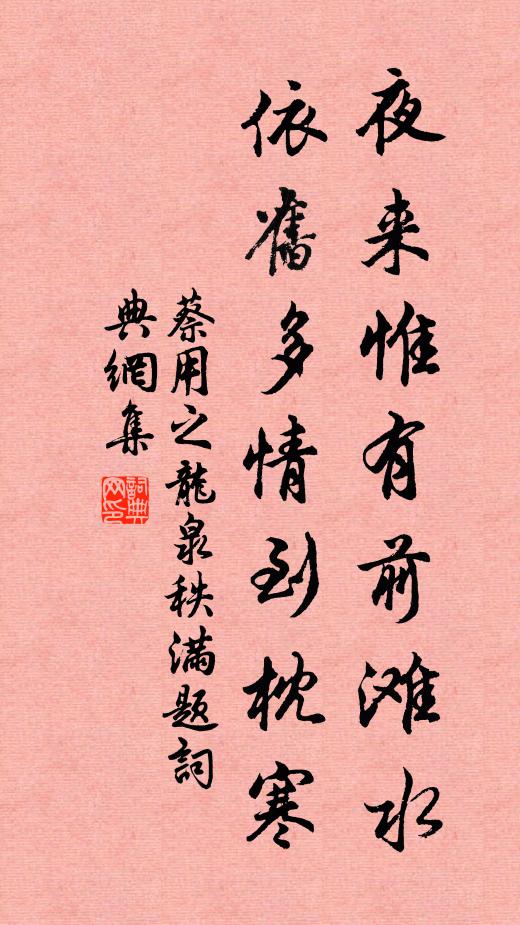 夜来惟有前滩水
依舊多情到枕寒
蔡用之龍泉秩滿題詞
典網集
詞典网印